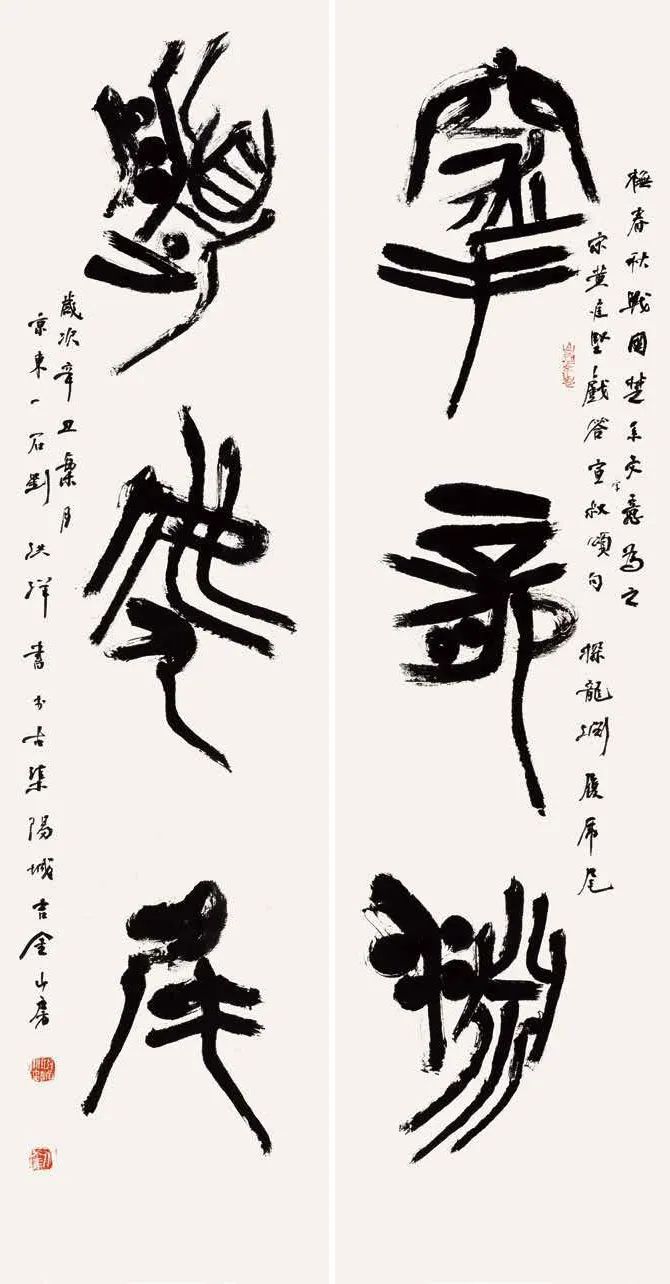 探龍淵
橅春秋戰國楚系文字意為之
宋黃庭堅戲答宣叔頌句 探龍淵 履虎尾
履虎尾
歲次辛丑桑月
京東一石劉洪祥書於古渠陽城吉金山房